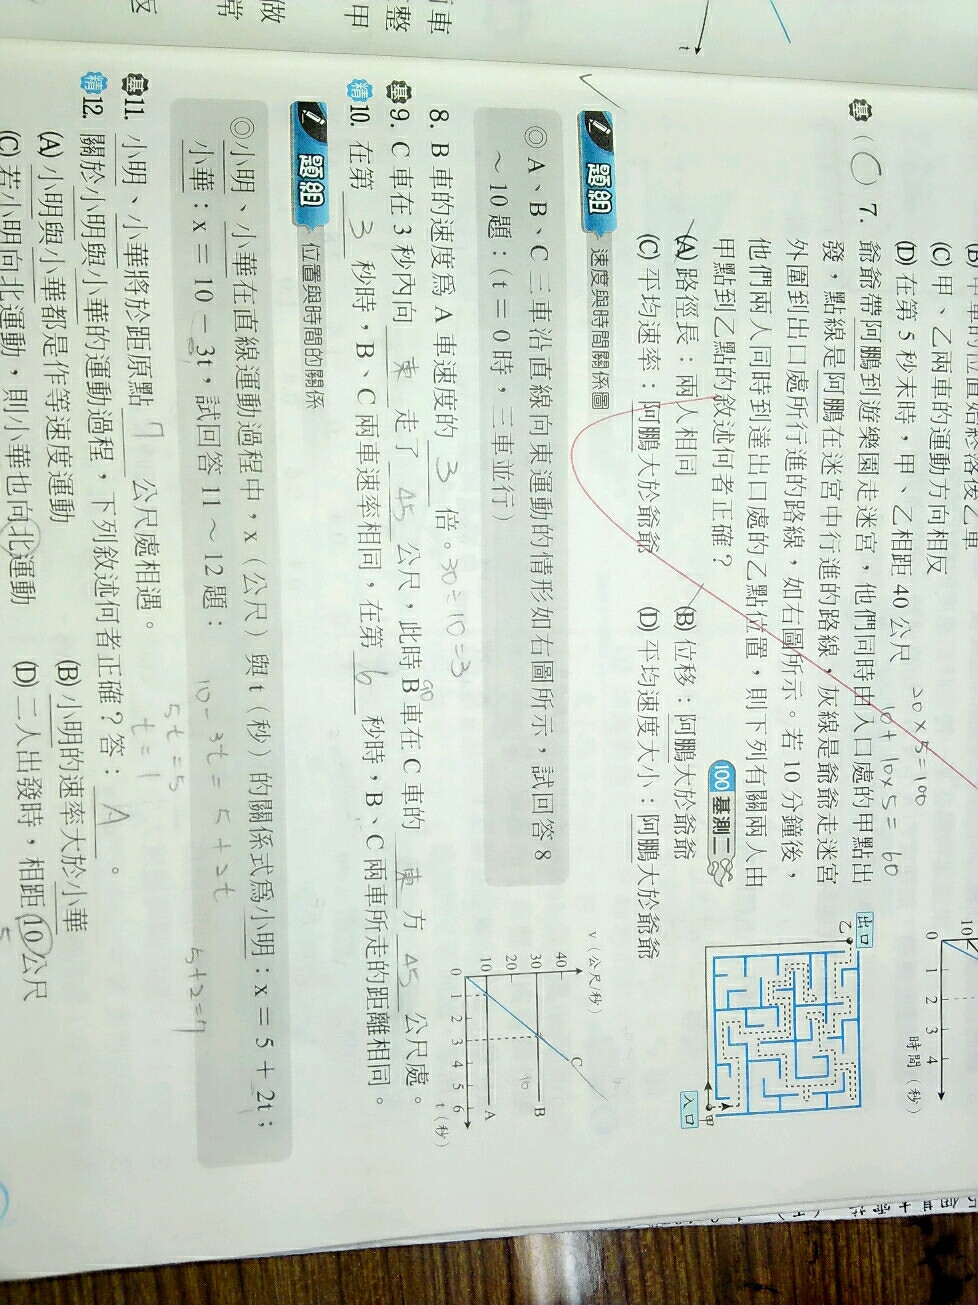 (C) 甲、乙兩車的運動方向相反
(D) 在第 5 秒末時，甲、乙相距 40 公尺
20×5=100
10+10×5=60
基 (C) 7. 爺爺帶阿鵬到遊樂園走迷宮，他們同時由入口處的甲點出
發，點線是阿鵬在迷宮中行進的路線，灰線是爺爺走迷宮
外圍到出口處所行進的路線，如右圖所示。若 10 分鐘後，
他們兩人同時到達出口處的乙點位置，則下列有關兩人由
甲點到乙點的敘述何者正確？
100 基測二
(A) 路徑長：兩人相同 (B) 位移：阿鵬大於爺爺
(C) 平均速率：阿鵬大於爺爺 (D) 平均速度大小：阿鵬大於爺爺
10
0 1 2 3 4
時間（秒）
出口
乙
甲
入口
題組 速度與時間關係圖
◎ A、B、C 三車沿直線向東運動的情形如右圖所示，試回答 8
～ 10 題：（t＝0 時，三車並行）
v（公尺/秒）
40
30
20
10
0 1 2 3 4 5 6
t（秒）
A
B
C
90
8. B 車的速度為 A 車速度的 3 倍。30÷10=3
基 9. C 車在 3 秒內向 東 走了 45 公尺，此時 B 車在 C 車的 東 方 45 公尺處。
90
精 10. 在第 3 秒時，B、C 兩車速率相同，在第 6 秒時，B、C 兩車所走的距離相同。
題組 位置與時間的關係
◎小明、小華在直線運動過程中，x（公尺）與 t（秒）的關係式為小明：x＝5＋2t；
小華：x＝10－3t，試回答 11～12 題：
10-3t=5+2t
5+2=7
5t=5
t=1
基 11. 小明、小華將於距原點 7 公尺處相遇。
精 12. 關於小明與小華的運動過程，下列敘述何者正確？答： A 。
(A) 小明與小華都是作等速度運動 (B) 小明的速率大於小華
(C) 若小明向北運動，則小華也向北運動 (D) 二人出發時，相距 10 公尺
5